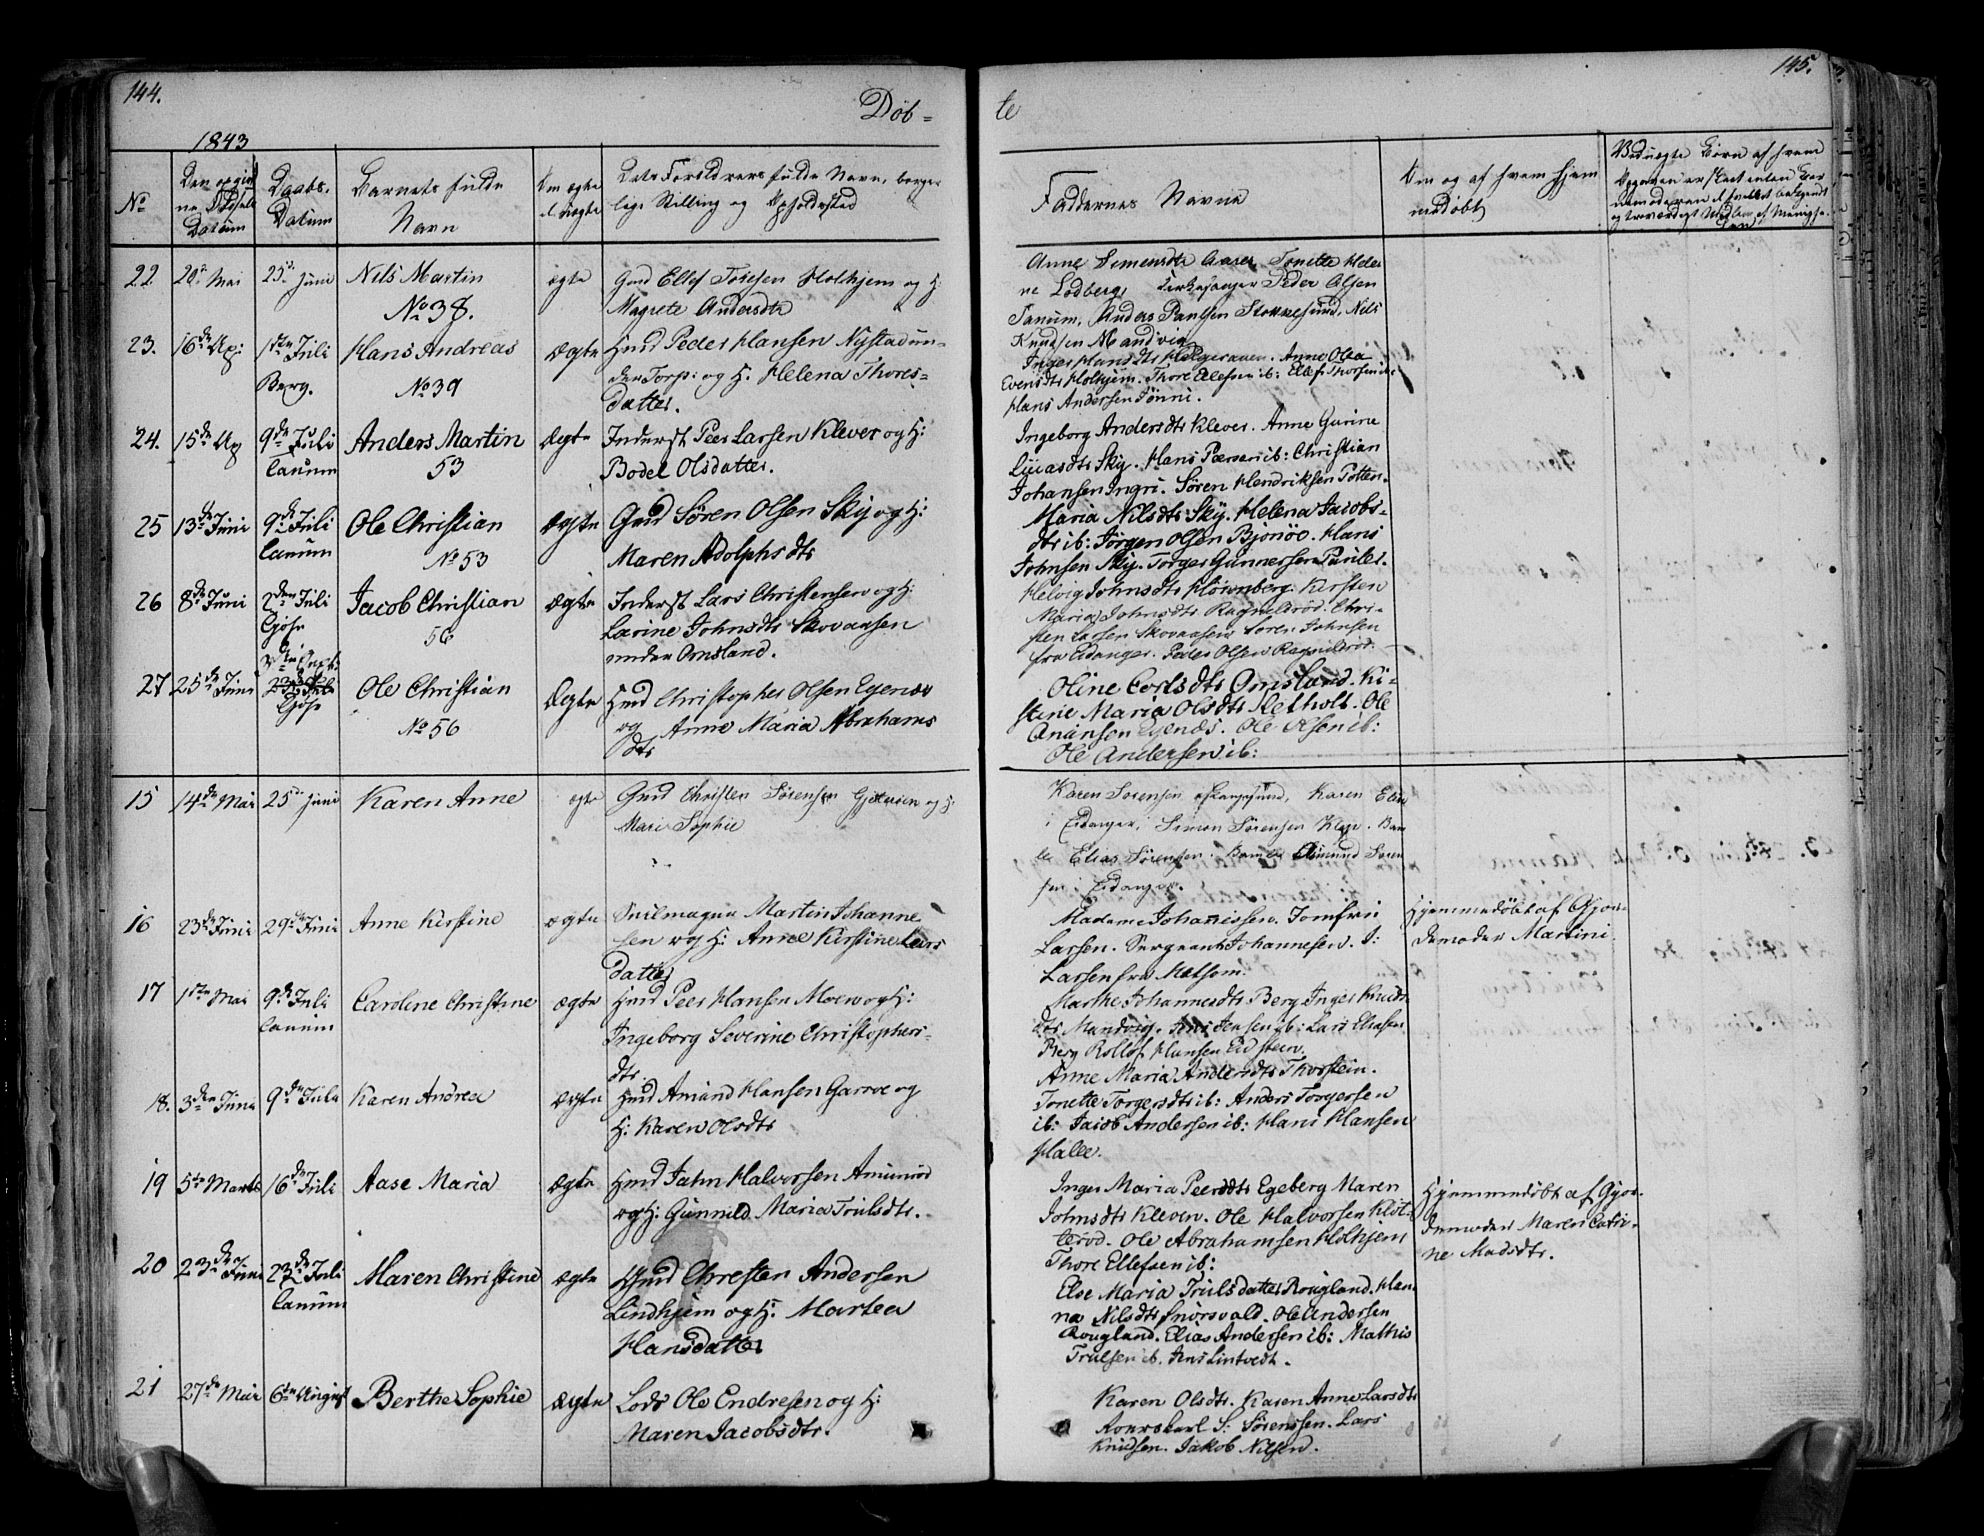 144.
145.
Døb-
te
1843
No
Daabs-
Datum
Barnets fulde
Navn
Om ægte
el. uægte
Dets Forældrers fulde Navn, borger
lige Stilling og Opholdssted
Faddernes Navne
Om og af hvem hjem
medøbt
22 28 Mai 25 Juni Nils Martin
No 38.
ægte
Gmd Ellef Toresen Holthjem og H:
Magrete Andersdtr
Anne Simensdtr Aarø, Tonette Hele
ne Lodberg, Kirkesanger Peder Olsen
Tanum, Anders Paulsen Stokkesund, Nils
Knudsen Mandvig
23. 16de Ap: 1ste Juli
Berg.
Hans Andreas
No 39
Ægte
Hmd Peder Hansen Nystad un-
der Torp: og H. Helena Thores-
datter.
Anne Olea
Evensdtr Holthjem. Thore Ellefsen ib: Ellef Thoresen ib:
Hans Andersen Jønni.
24. 15de Ap 9de Juli
Tanum
Anders Martin
53
Ægte
Inderst Peer Larsen Klever og H:
Bodel Olsdatter.
Ingeborg Andersdtr Klever. Anne Gurine
Lucasdtr Sky. Hans Pærsen ib: Christian
Johansen Ingri. Søren Hendriksen Potten.
25 13de Juni 9de Juli
Tanum
Ole Christian
No 53
Ægte
Gmd Søren Olsen Sky og H:
Maren Adolphsdtr
Maria Nilsdtr Sky. Helena Jacobs-
dtr ib: Jørgen Olsen Bjønøe. Hans
Johnsen Sky. Torger Gunnersen Pauler.
26 8de Juni 2den Juli
Kjose
Jacob Christian
56
Ægte
Inderst Lars Christensen og H:
Larine Johnsdtr Skovaasen
under Omsland.
Helvig Johnsdtr Hovenberg. Kirsten
Maria Johnsdtr Ragnildrød. Chri-
sten Larsen Skovaasen. Soren Johnsen
fra Eidanger. Peder Olsen Ragnildrød.
27 25de Juni
3die Sept:
23de Juli
Kjose
Ole Christian
No 56
Ægte
Hmd Christopher Olsen Egenæs
og Anne Maria Abrahams
dtr
Oline Carlsdtr Omsland. Ki-
stine Maria Olsdtr Hetholt. Ole
Anansen Egenæs. Ole Olsen ib:
Ole Andersen ib:
15 14de Mai 25 Juni Karen Anne
ægte
Gmd Christen Sørensen Gjetersen og H:
Mari Sophie
Karen Sørensen Langesund, Karen Elisa
i Eidanger, Simon Sørensen Klep. Bam
ble Elias Sørensen Bamble Amund Soren
sen i Eidanger.
16 23de Juni 29de Juni Anne Kirstine
ægte
Seilmager Martin Johanne
sen og H: Anne Kirstine Lars
datter
Madame Johannessen. Jomfru
Larsen. Sergeant Johannesen. J:
Larsen fra Melsom.
Hjemmedøbt af Gjor-
demoder Martini
17 1ste Mai 9de Juli
Tanum
Caroline Christine
Ægte
Hmd Peer Hansen Moen og H:
Ingeborg Severine Christophers-
dtr.
Marthe Johannesdtr Berg Inger Knuds
dtr. Mandvig. Jens Jensen ib: Lars Eliasen
Berg Rollof Hansen Eidsteen.
18. 3die Juni 9de Juli Karen Andrea
Ægte
Hmd Amund Hansen Garroe og
H: Karen Olsdtr
Anne Maria Andersdtr Thorstein.
Tonette Torgersdtr ib: Anders Torgersen
ib: Jacob Andersen ib: Hans Hansen
Halle.
19 5te Marts 16de Juli Aase Maria
Ægte
Hmd Jahn Halvorsen Amunrød
og H: Gunnild Maria Trulsdtr.
Inger Maria Peersdtr Egeberg Maren
Johnsdtr Kleven. Ole Halvorsen Klot-
terød. Ole Abrahamsen Holthjem
Thore Ellefsen ib:
Hjemmedøbt af Gjor-
demoder Maren Catri-
ne Madsdtr.
20 23de Juni 23de Juli
Tanum
Maren Christine
Ægte
Gmd Christen Andersen
Lindhjem og H: Martea
Hansdatter
Else Maria Trulsdatter Rougland. Han-
na Nilsdtr Snørsvald. Ole Andersen
Rougland. Elias Andersen ib: Mathis
Trulsen ib. Jens Lintvedt.
21 27de Mai 6te August Berthe Sophie
Ægte
Lods Ole Endresen og H:
Maren Jacobsdtr.
Karen Olsdtr. Karen Anne Larsdtr
S: Sørenssen. Lars
Knudsen. Jakob Nilsen.